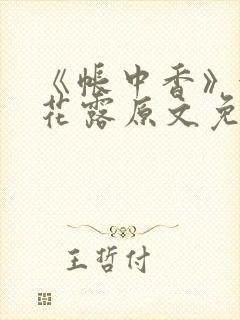 《帐中香》
花露原文免
王哲付